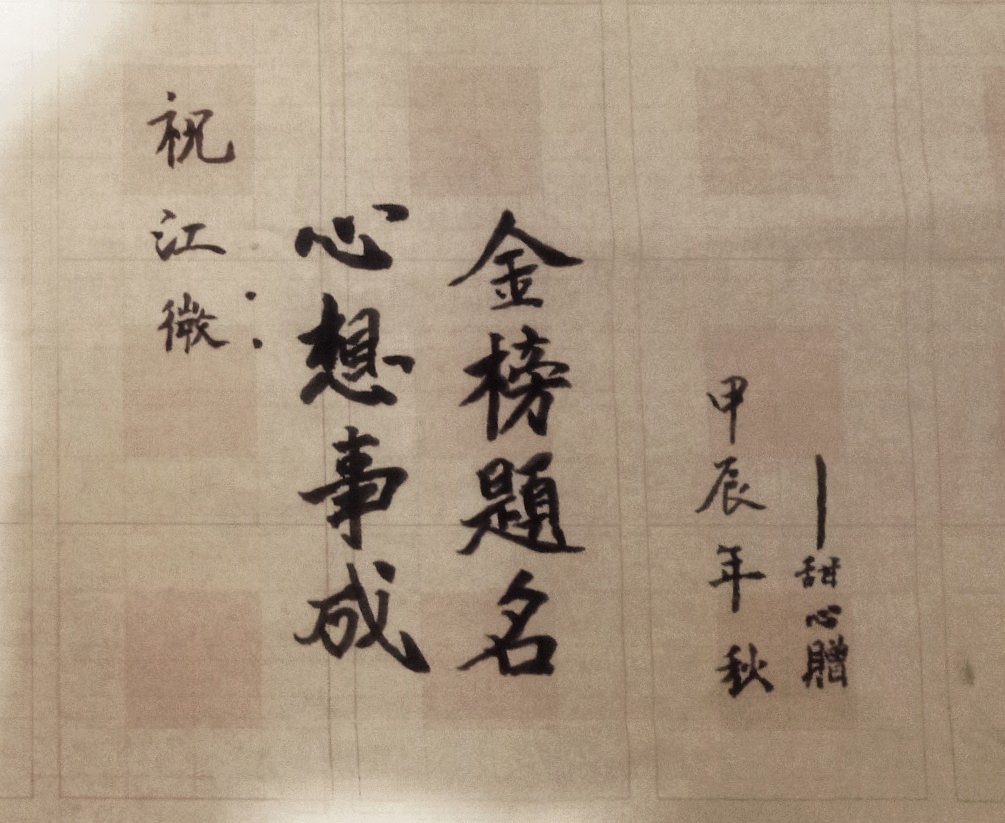 祝江微：
心想事成
金榜題名
甲辰年秋
——甜心贈